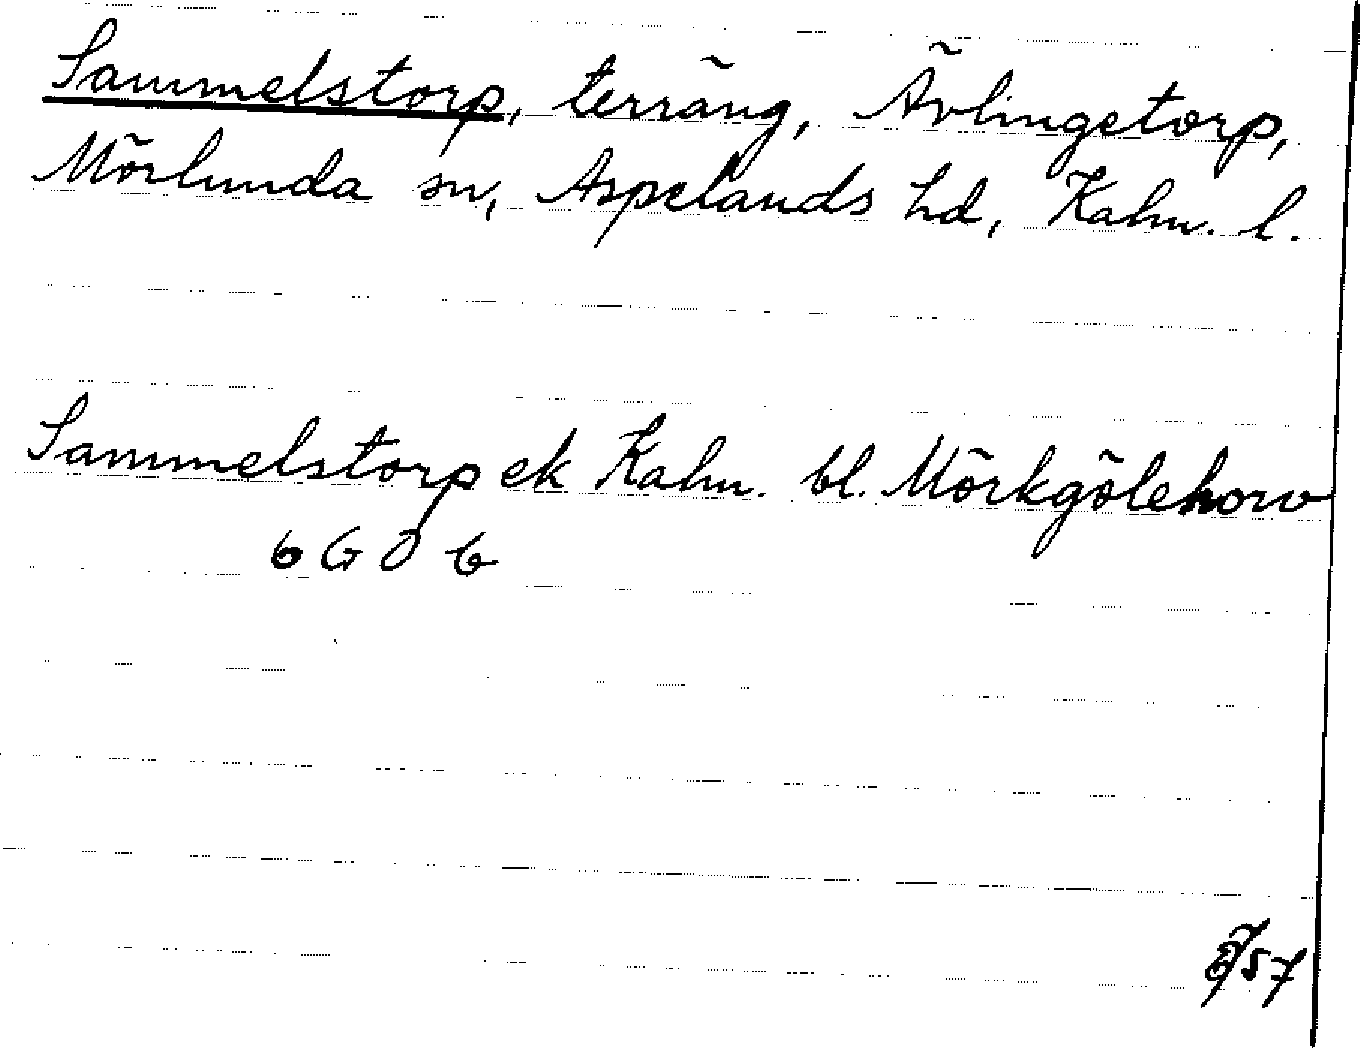 Sammelstorp, terräng, Ävlingetorp,
Mörlunda sn, Aspelands hd, Kalm. l.
Sammelstorp ek Kalm. bl. Mörkgölehorv
6 G 0 6
/57